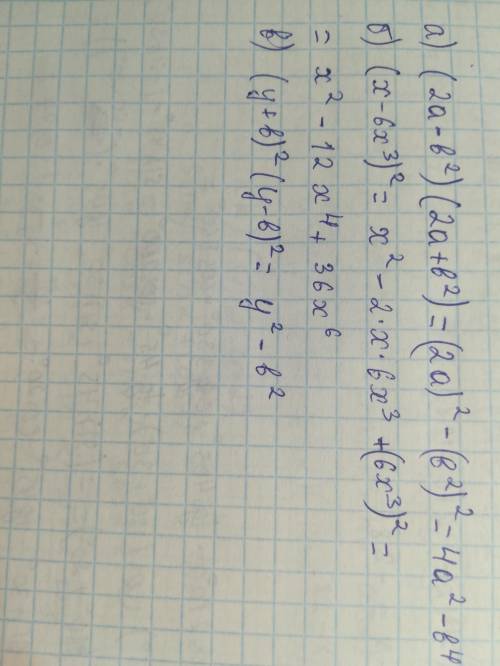 а) (2a-b²)(2a+b²)=(2a)²-(b²)²=4a²-b⁴
б) (x-6x³)²=x²-2·x·6x³+(6x³)²=
= x²-12x⁴+36x⁶
в) (y+b)²(y-b)²=y²-b²